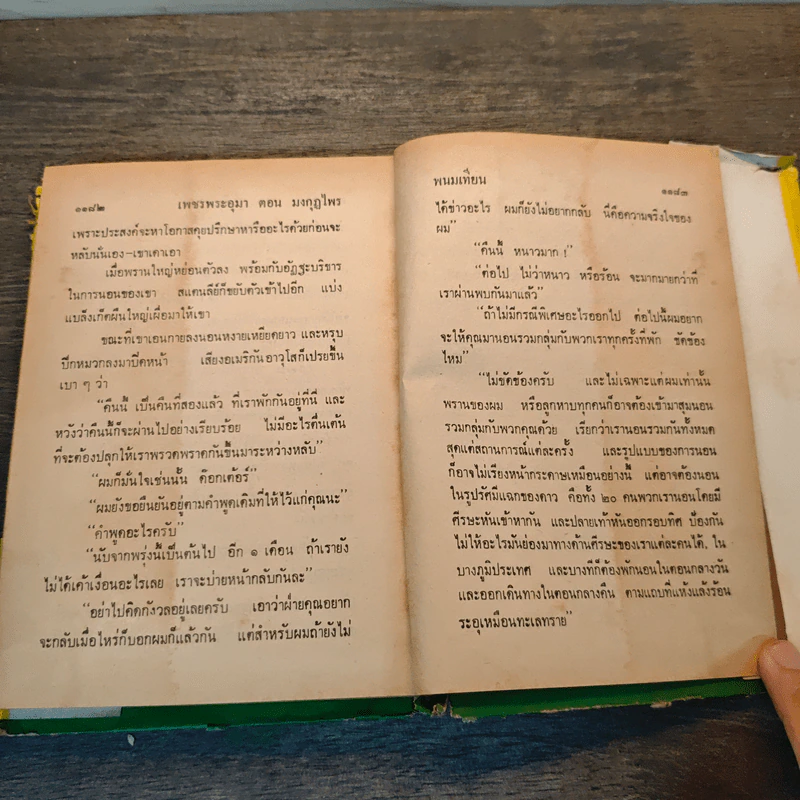 ๑๑๘๒ เพชรพระอุมา ตอน มงกุฎไพร
เพราะประสงค์จะหาโอกาสคุยปรึกษาหารืออะไรด้วยก่อนจะ
หลับนั่นเอง-เขาเดาเอา
เมื่อพรานใหญ่หย่อนตัวลง พร้อมกับอัฏฐะบริขาร
ในการนอนของเขา สแตนลีย์ก็ขยับตัวเข้าไปอีก แบ่ง
แบล็งเก็ตผืนใหญ่เผื่อมาให้เขา
ขณะที่เขาเอนกายลงนอนหงายเหยียดยาว และหรุบ
ปีกหมวกลงมาปิดหน้า เสียงอเมริกันอาวุโสก็เปรยขึ้น
เบา ๆ ว่า
“คืนนี้ เป็นคืนที่สองแล้ว ที่เราพักกันอยู่ที่นี่ และ
หวังว่าคืนนี้ก็จะผ่านไปอย่างเรียบร้อย ไม่มีอะไรตื่นเต้น
ที่จะต้องปลุกให้เราพรวดพราดกันขึ้นมาระหว่างหลับ”
“ผมก็มั่นใจเช่นนั้น ด๊อกเต้อร์”
“ผมยังขอยืนยันอยู่ตามคำพูดเดิมที่ให้ไว้แก่คุณนะ”
“คำพูดอะไรครับ”
“นับจากพรุ่งนี้เป็นต้นไป อีก ๑ เดือน ถ้าเรายัง
ไม่ได้เค้าเงื่อนอะไรเลย เราจะบ่ายหน้ากลับกันละ”
“อย่าไปคิดกังวลอยู่เลยครับ เอาว่าฝ่ายคุณอยาก
จะกลับเมื่อไหร่ก็บอกผมก็แล้วกัน แต่สำหรับผมถ้ายังไม่
พนมเทียน ๑๑๘๓
ได้ข่าวอะไร ผมก็ยังไม่อยากกลับ นี่คือความจริงใจของ
ผม”
“คืนนี้ หนาวมาก !”
“ต่อไป ไม่ว่าหนาว หรือร้อน จะมากมายกว่าที่
เราผ่านพบกันมาแล้ว”
“ถ้าไม่มีกรณีพิเศษอะไรออกไป ต่อไปนี้ผมอยาก
จะให้คุณมานอนรวมกลุ่มกับพวกเราทุกครั้งที่พัก ขัดข้อง
ไหม”
“ไม่ขัดข้องครับ และไม่เฉพาะแต่ผมเท่านั้น
พรานของผม หรือลูกหาบทุกคนก็อาจต้องเข้ามาสุมนอน
รวมกลุ่มกับพวกคุณด้วย เรียกว่าเรานอนรวมกันทั้งหมด
สุดแต่สถานการณ์แต่ละครั้ง และรูปแบบของการนอน
ก็อาจไม่เรียงหน้ากระดาษเหมือนอย่างนี้ แต่อาจต้องนอน
ในรูปรัศมีแฉกของดาว คือทั้ง ๒๐ คนพวกเรานอนโดยมี
ศีรษะหันเข้าหากัน และปลายเท้าหันออกรอบทิศ ป้องกัน
ไม่ให้อะไรมันย่องมาทางด้านศีรษะของเราแต่ละคนได้. ใน
บางภูมิประเทศ และบางทีก็ต้องพักนอนในตอนกลางวัน
และออกเดินทางในตอนกลางคืน ตามแถบที่แห้งแล้งร้อน
ระอุเหมือนทะเลทราย”